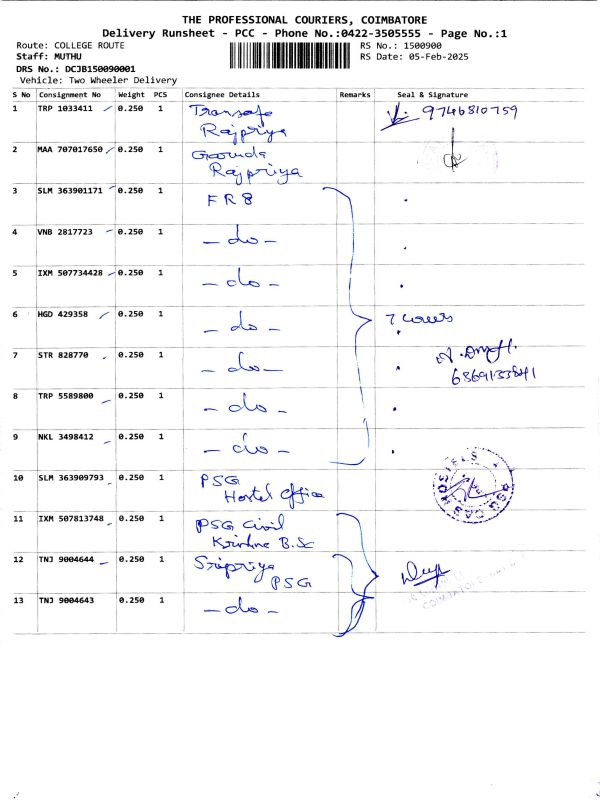 THE PROFESSIONAL COURIERS, COIMBATORE
Delivery Runsheet - PCC - Phone No.:0422-3505555 - Page No.:1
Route: COLLEGE ROUTE RS No.: 1500900
Staff: MUTHU RS Date: 05-Feb-2025
DRS No.: DCJB150090001
Vehicle: Two Wheeler Delivery
S No Consignment No Weight PCS Consignee Details Remarks Seal & Signature
1 TRP 1033411 0.250 1 Transafe 9746810759
Rajpriya
2 MAA 707017650 0.250 1
Rajpriya
3 SLM 363901171 0.250 1 FR8
4 VNB 2817723 0.250 1 - do -
5 IXM 507734428 0.250 1 - do -
6 HGD 429358 0.250 1 - do - 7 Covers
7 STR 828770 0.250 1 - do -
8 TRP 5589800 0.250 1 - do -
9 NKL 3498412 0.250 1 - do -
10 SLM 363909793 0.250 1 PSG
Hostel Office
11 IXM 507813748 0.250 1 PSG Civil
B.Sc
12 TNJ 9004644 0.250 1 Sripriya
PSG
13 TNJ 9004643 0.250 1 - do -